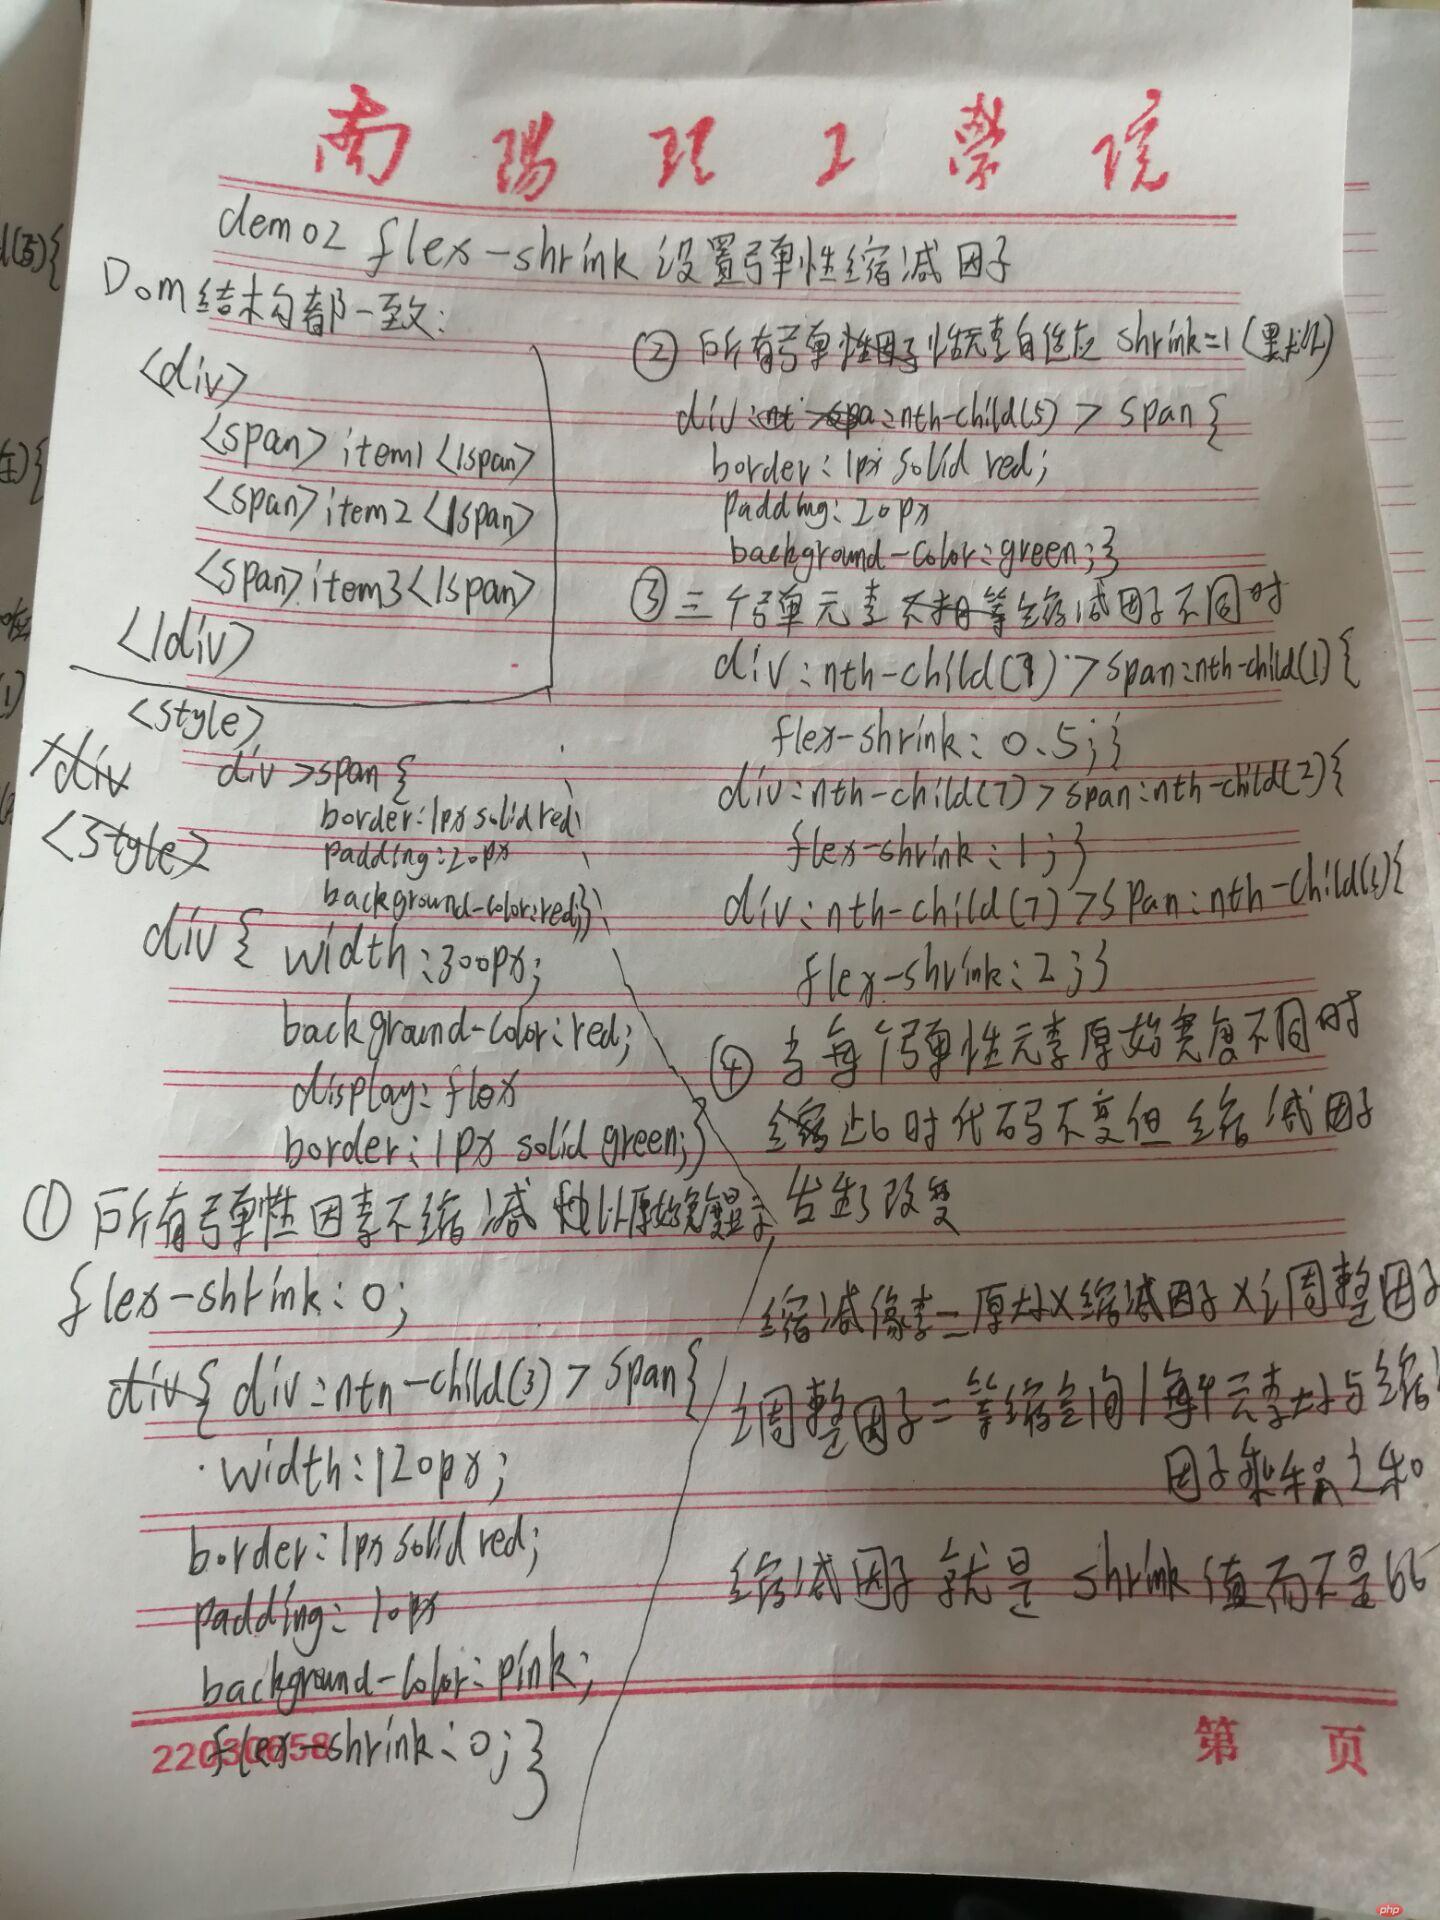 南陽理工學院
demo2 flex-shrink 设置弹性缩减因子
Dom结构都一致:
<div>
<span>item1</span>
<span>item2</span>
<span>item3</span>
</div>
<style>
div
div >span {
border:1px solid red;
padding:20px
<style>
background-color:red;}
div { width:300px;
background-color:red;
display:flex
border:1px solid green;}
① 所有弹性因素不缩减 以原始宽度显示
flex-shrink:0;
div{ div:nth-child(3) > span{
width:120px;
border:1px solid red;
padding:10px
background-color:pink;
flex-shrink:0;}
② 所有弹性因子 元素自适应 shrink=1(默认)
div:nth-child(5) > span {
border:1px solid red;
padding:20px
background-color:green;}
③ 三个弹元素不相等缩减因子不同时
div:nth-child(7) >span:nth-child(1){
flex-shrink:0.5;}
div:nth-child(7) >span:nth-child(2){
flex-shrink:1;}
div:nth-child(7) >span:nth-child(3){
flex-shrink:2;}
④ 当每个弹性元素原始宽度不同时
缩 比例时代码不变但缩减因子
发生了改变
缩减像素=原大小×缩减因子×调整因子
调整因子=等缩空间/每个元素大小与缩
因子乘积之和
缩减因子就是shrink值而不是
22030658
第 页
php